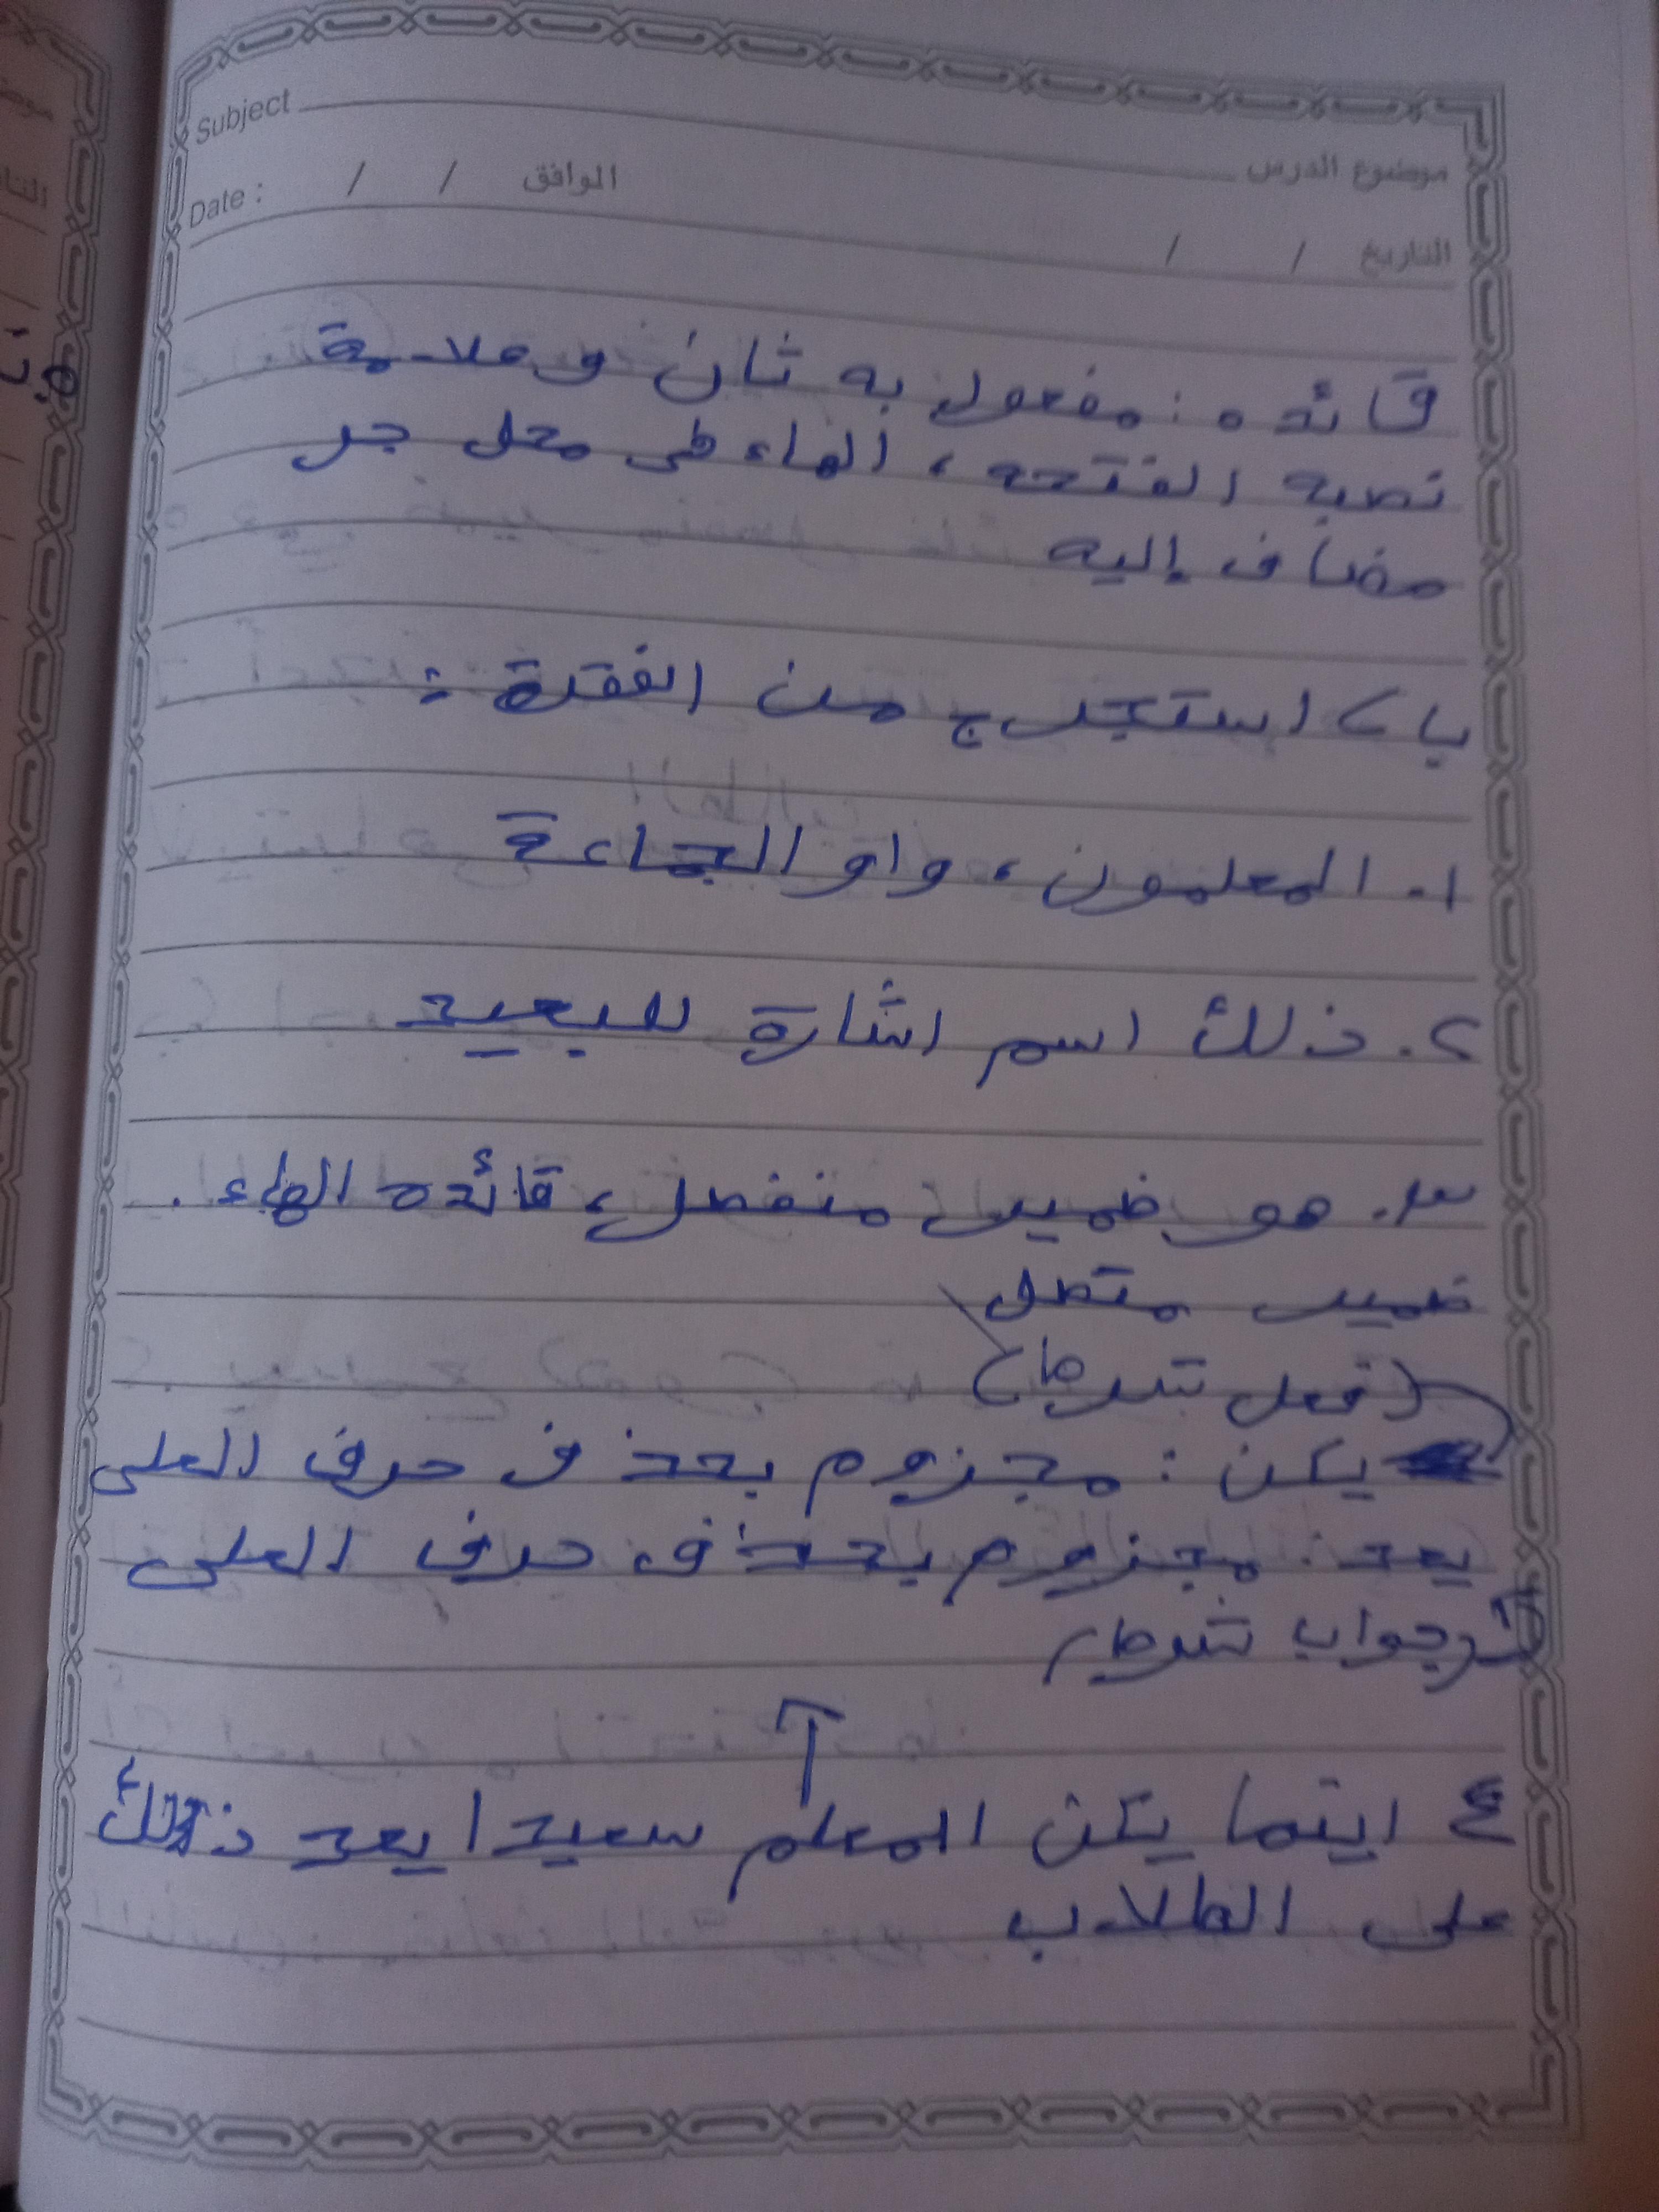 Subject موضوع الدرس
Date : / / الموافق / / التاريخ
قائده : مفعول به ثان وعلامة
نصبه الفتحه ، الهاء في محل جر
مضاف إليه
ب > استخرج من الفقرة :
١. المعلمون ، واو الجماعة
٢. ذلك اسم اشارة للبعيد
٣. هو ضمير منفصل ، قائده الهاء .
ضمير متصل
( فعل شرط )
يكن : مجزوم بحذف حرف العلى
يعد : مجزوم بحذف حرف العلى
( جواب شرط )
٤ اينما يكن المعلم سعيدا يعد ذلك
على الطلاب